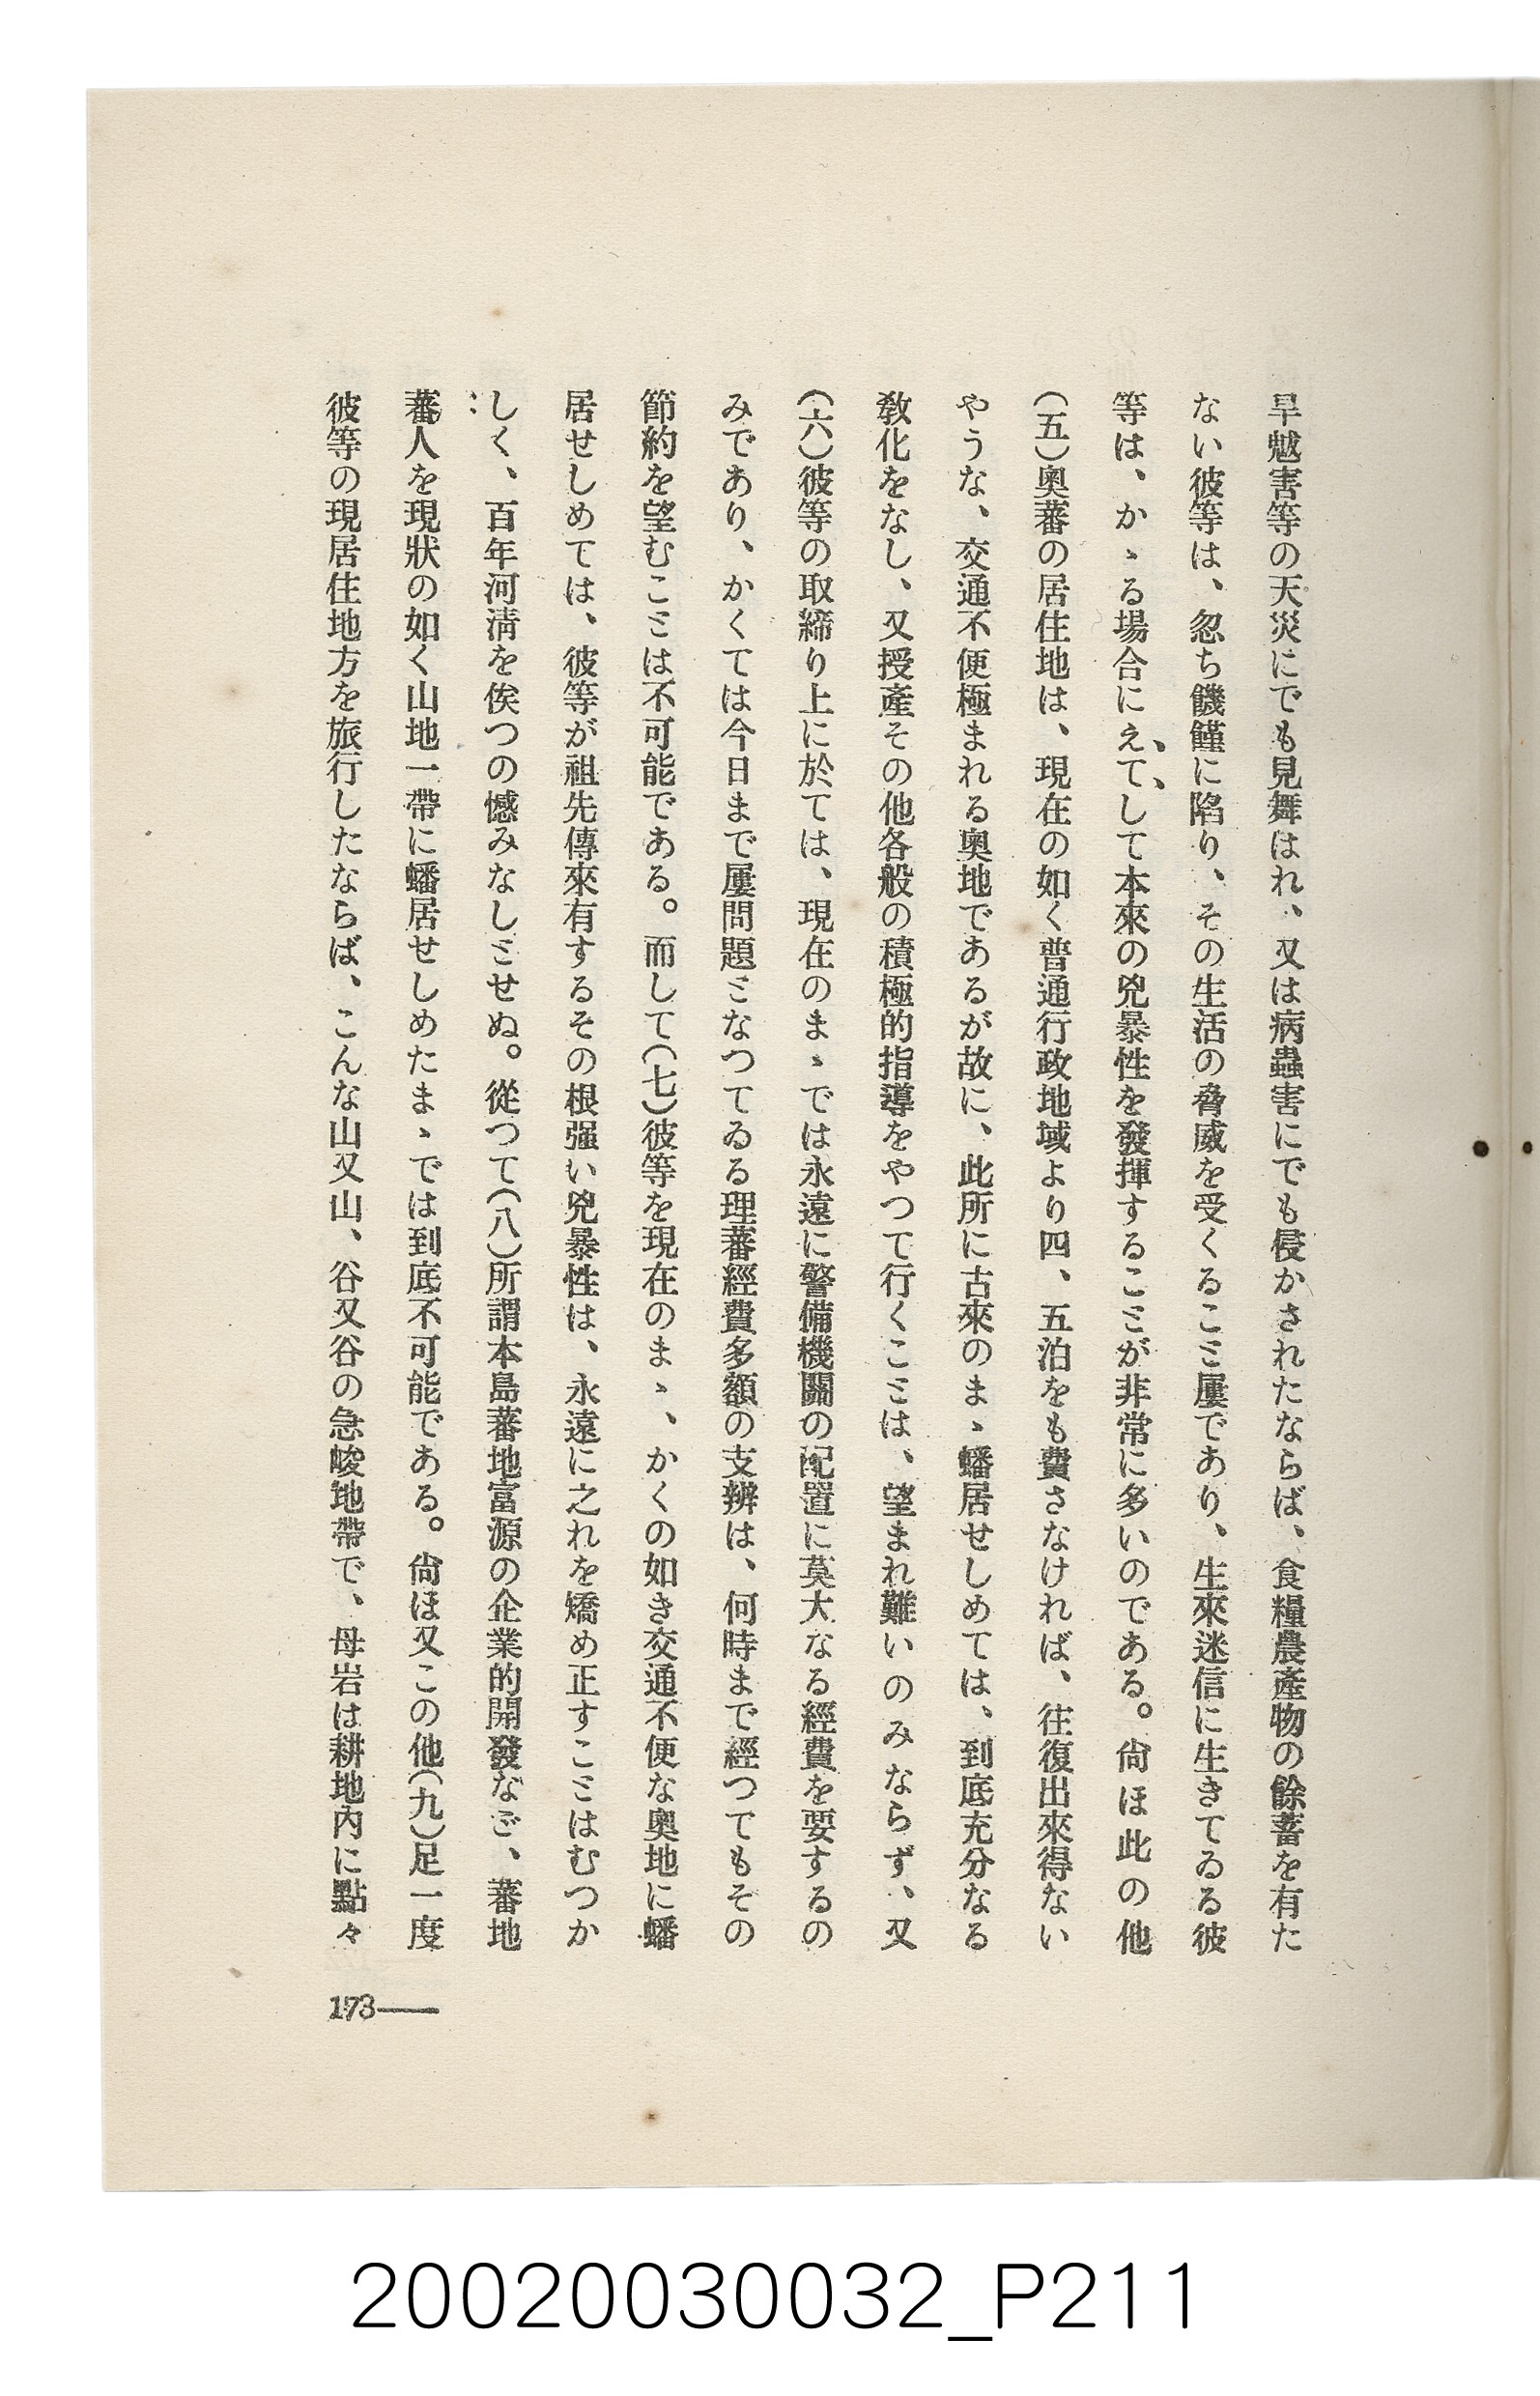 旱魃害等の天災にでも見舞はれ、又は病蟲害にでも侵かされたならば、食糧農產物の餘蓄を有た
ない彼等は、忽ち饑饉に陷り、その生活の脅威を受くること屢であり、生來迷信に生きてゐる彼
等は、かゝる場合にえてして本來の兇暴性を發揮することが非常に多いのである。尙ほ此の他
(五)奧蕃の居住地は、現在の如く普通行政地域より四、五泊をも費さなければ、往復出來得ない
やうな、交通不便極まれる奧地であるが故に、此所に古來のまゝ蟠居せしめては、到底充分なる
敎化をなし、又授產その他各般の積極的指導をやつて行くことは、望まれ難いのみならず、又
(六)彼等の取締り上に於ては、現在のまゝでは永遠に警備機關の配置に莫大なる經費を要するの
みであり、かくては今日まで屢問題となつてゐる理蕃經費多額の支辨は、何時まで經つてもその
節約を望むことは不可能である。而して(七)彼等を現在のまゝ、かくの如き交通不便な奧地に蟠
居せしめては、彼等が祖先傳來有するその根强い兇暴性は、永遠に之れを矯め正すことはむつか
しく、百年河淸を俟つの憾みなしとせぬ。從つて(八)所謂本島蕃地富源の企業的開發など、蕃地
蕃人を現狀の如く山地一帶に蟠居せしめたまゝでは到底不可能である。尙ほ又この他(九)足一度
彼等の現居住地方を旅行したならば、こんな山又山、谷又谷の急峻地帶で、母岩は耕地內に點々
173——
20020030032_P211